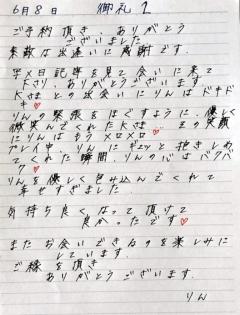 6月8日 御礼1
ご予約頂き ありがとう
ございました
素敵な出逢いに感謝です.
写メ日記等を見て会いに来て
下さり、ありがとうございます
Kさまとの出会いにりんはドキドキ♡
りんの緊張をほぐすように、優しく
微笑んでくれたKさま… その笑顔
にりんはもうメロメロ♡
プレイ中、りんにギュッと抱きしめ
てくれた瞬間、りんの心はバクバク♡
りんを優しく包み込んでくれて
幸せすぎました.
気持ち良くなって頂けて
良かったです♡
またお会いできるのを楽しみに
しています.
ご縁を頂き
ありがとうございます.
りん